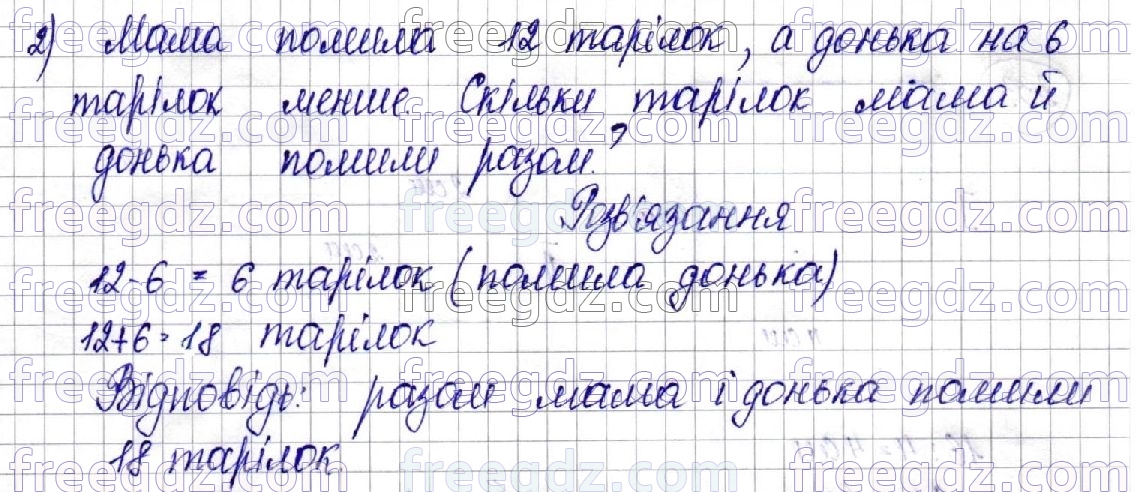 2) Мама помила 12 тарілок, а донька на 6
тарілок менше. Скільки тарілок мама й
донька помили разом?
Розв'язання
12-6 = 6 тарілок (помила донька)
12+6=18 тарілок
Відповідь: разом мама і донька помили
18 тарілок.
freegdz.com